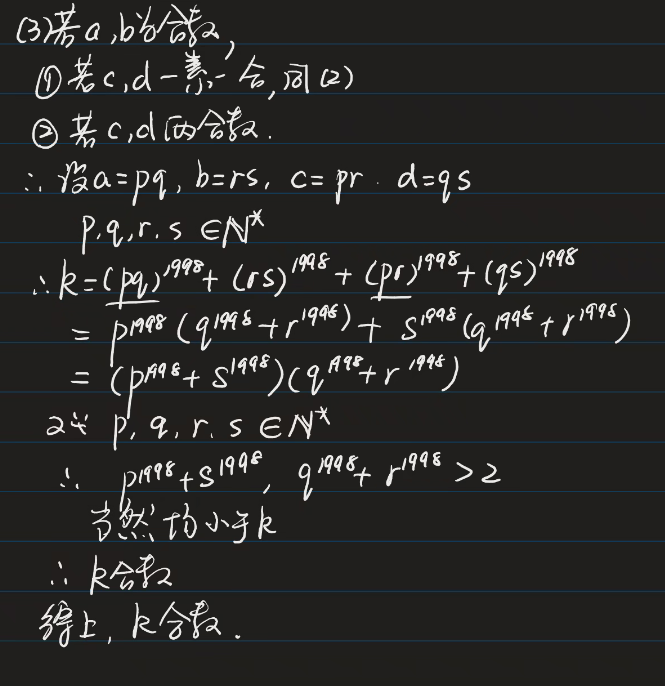 (3)若a,b为合数,
①若c,d一素一合,同(2)
②若c,d两合数.
∴设a=pq, b=rs, c=pr. d=qs
p,q,r,s∈N*
∴k=(pq)^1998+(rs)^1998+(pr)^1998+(qs)^1998
=p^1998(q^1998+r^1998)+s^1998(q^1998+r^1998)
=(p^1998+s^1998)(q^1998+r^1998)
p,q,r,s∈N*
∴ p^1998+s^1998, q^1998+r^1998>2
当然均小于k
∴k合数
综上,k合数.